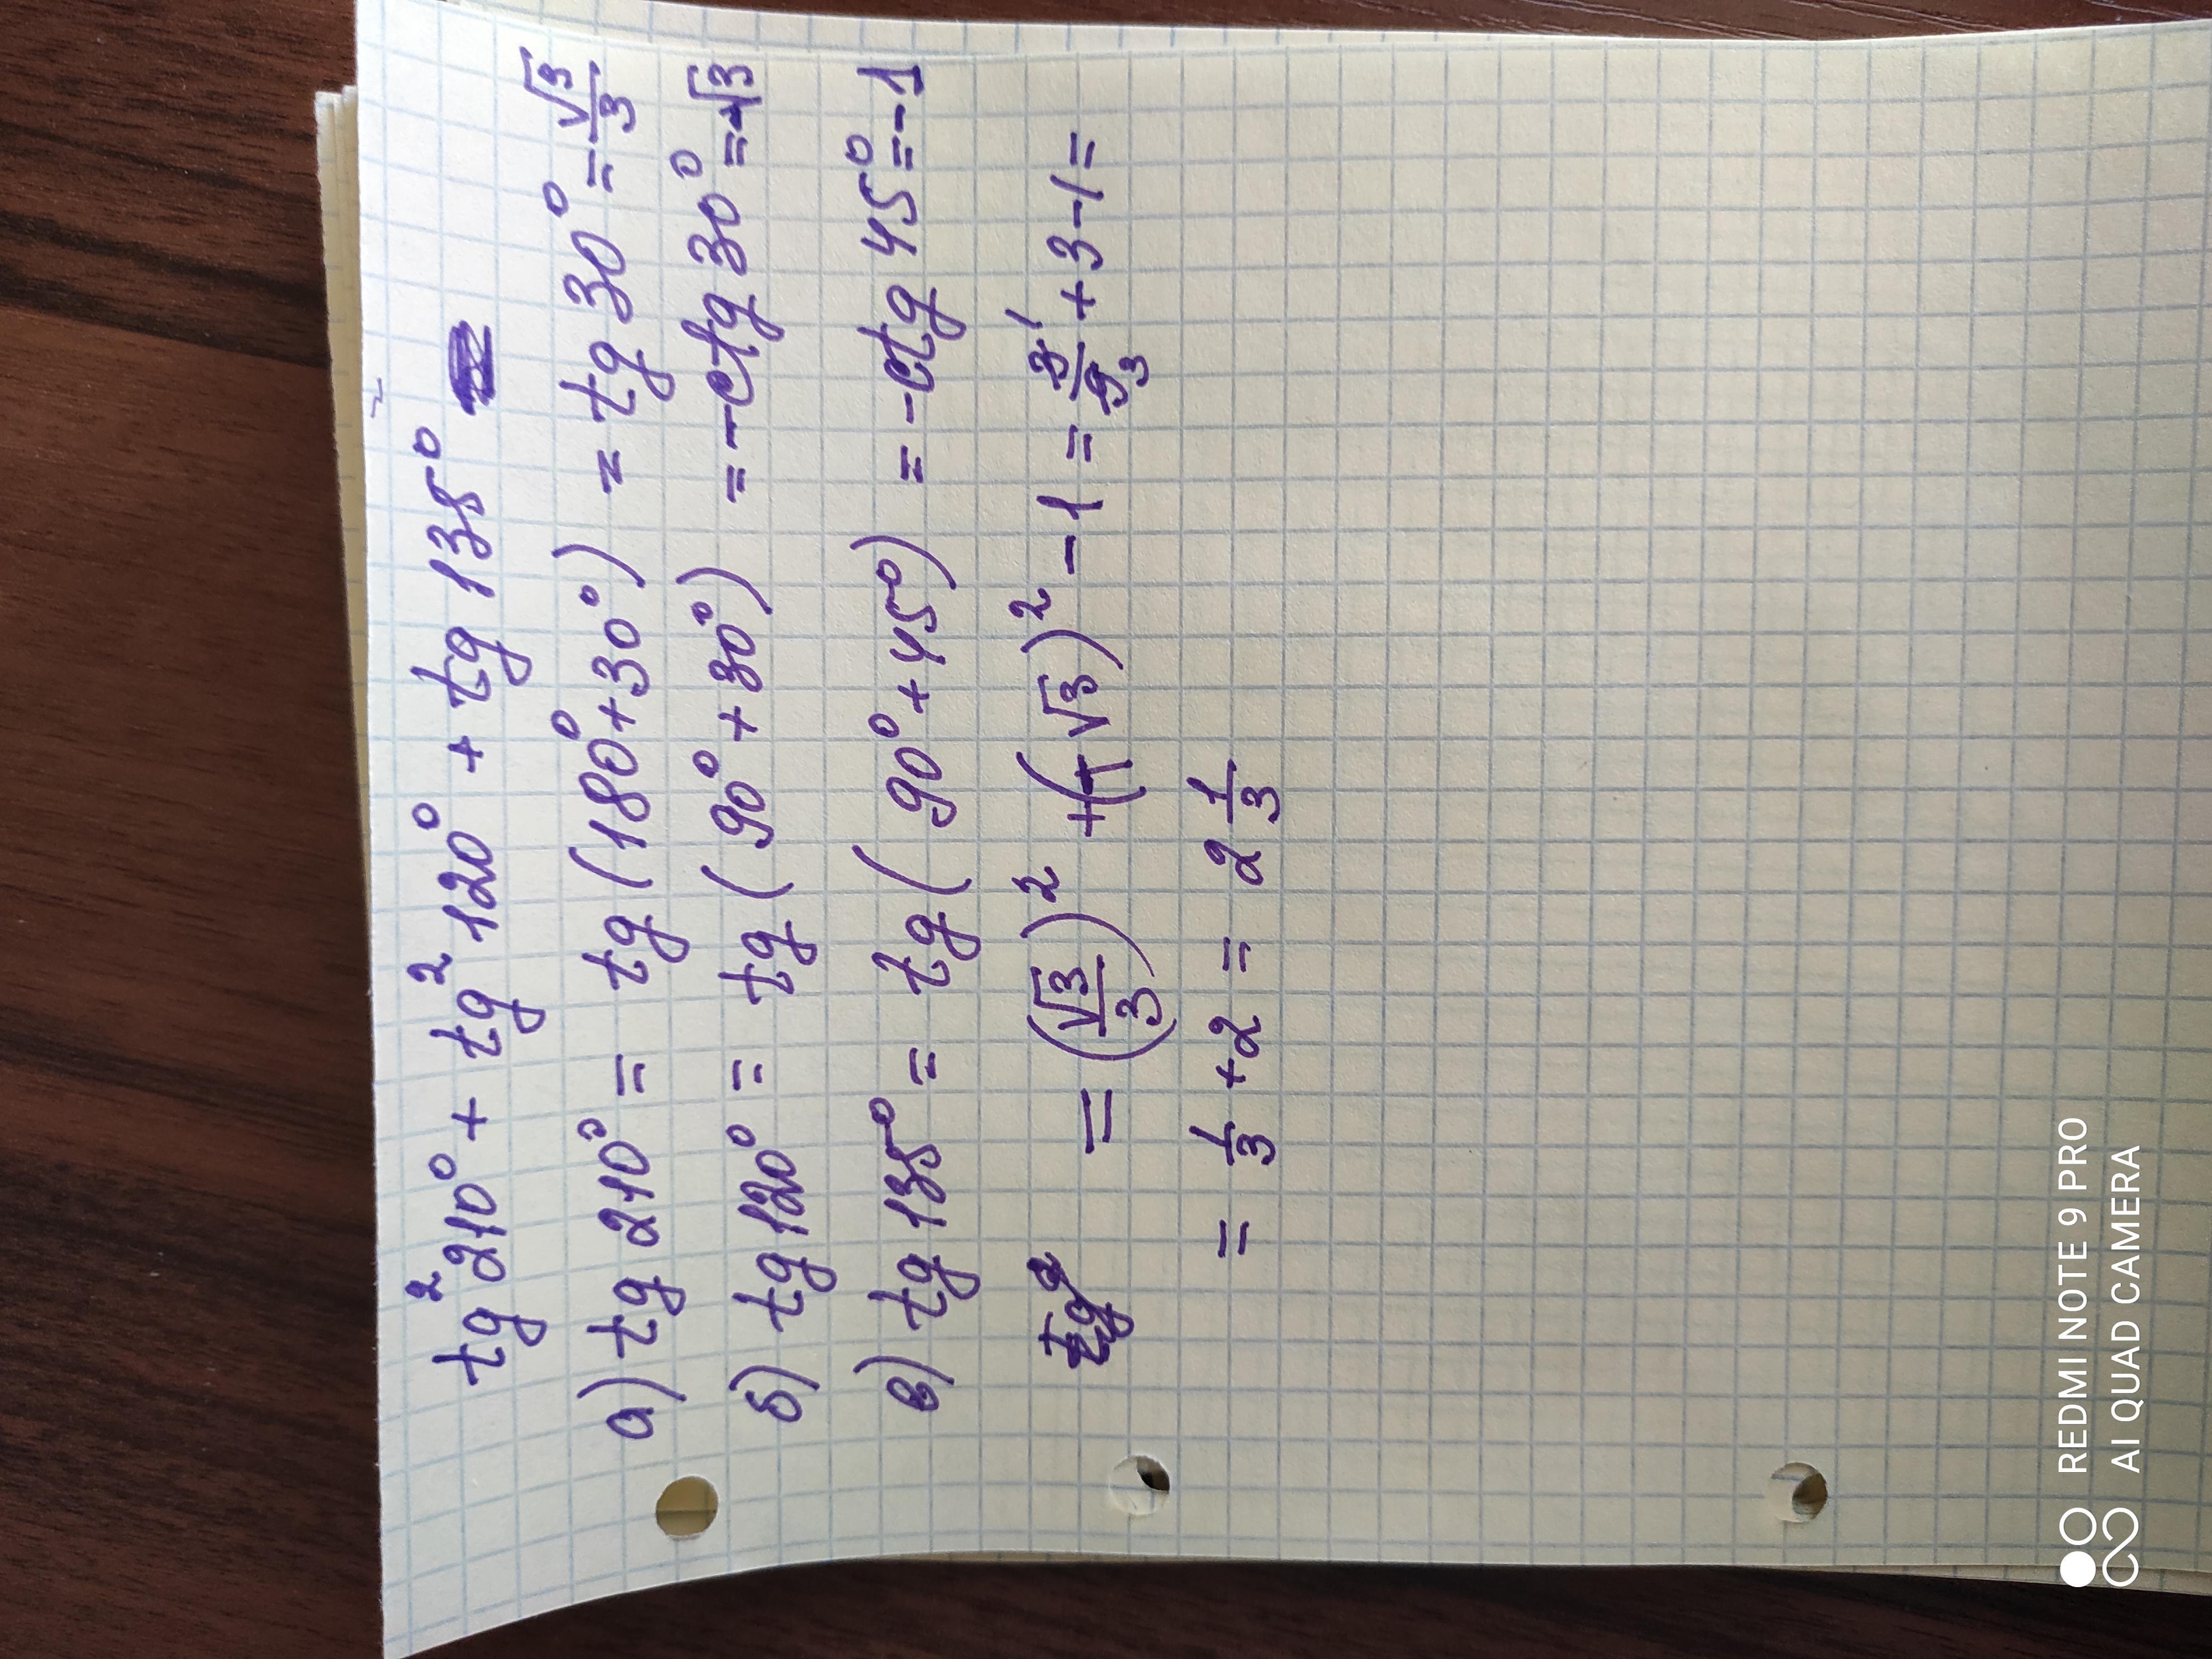 tg²210° + tg²120° + tg 135°
а) tg 210° = tg (180°+30°) = tg 30° = √3/3
б) tg 120° = tg (90°+30°) = -ctg 30° = -√3
в) tg 135° = tg (90°+45°) = -ctg 45° = -1
= (√3/3)² + (-√3)² - 1 = 3/9 + 3 - 1 =
= 1/3 + 2 = 2 1/3
REDMI NOTE 9 PRO
AI QUAD CAMERA